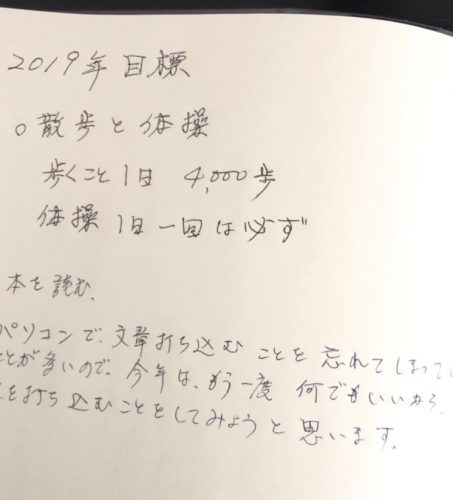 2019年 目標
○散歩と体操
歩くこと1日 4,000歩
体操 1日一回は必ず
本を読む、
パソコンで、文章打ち込むことを忘れてしまってい
とが多いので、今年は、もう一度 何でもいいから、
を打ち込むことをしてみようと思います。